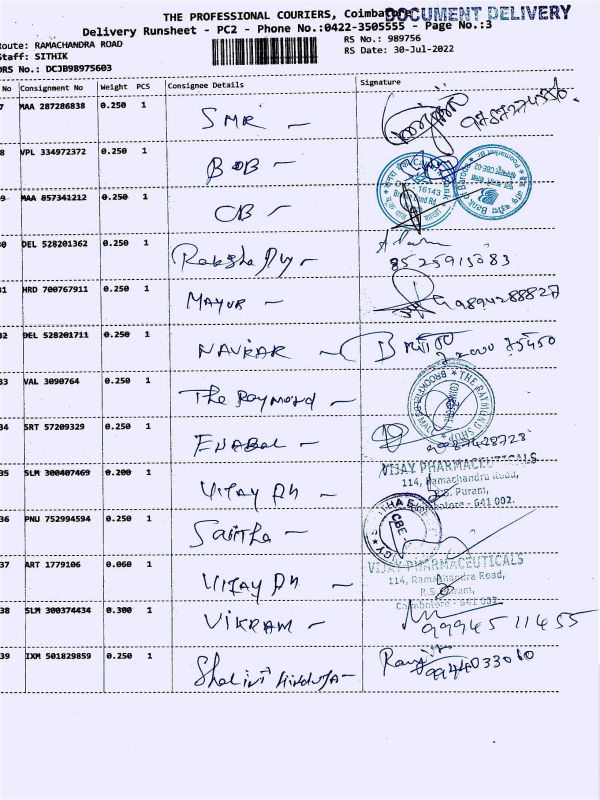 THE PROFESSIONAL COURIERS, Coimbatore
DOCUMENT DELIVERY
Delivery Runsheet - PC2 - Phone No.:0422-3505555 - Page No.:3
Route: RAMACHANDRA ROAD RS No.: 989756
Staff: SITHIK RS Date: 30-Jul-2022
DRS No.: DCJB98975603
No Consignment No Weight PCS Consignee Details Signature
7 MAA 287286838 0.250 1 SMR -
8 VPL 334972372 0.250 1 BOB -
9 MAA 857341212 0.250 1 CB -
16143
30 DEL 528201362 0.250 1
8525915083
31 HRD 700767911 0.250 1 MAYUR - 9894288827
32 DEL 528201711 0.250 1 NAVKAR -
33 VAL 3090764 0.250 1 The Raymond -
THE RAYMOND SHOP
34 SRT 57209329 0.250 1
35 SLM 300407469 0.200 1 VIJAY Ph -
VIJAY PHARMACEUTICALS
114, Ramachandra Road,
R.S. Puram,
Coimbatore - 641 002.
36 PNU 752994594 0.250 1
CBE
37 ART 1779106 0.060 1 VIJAY Ph -
VIJAY PHARMACEUTICALS
114, Ramachandra Road,
R.S. Puram,
Coimbatore - 641 002.
38 SLM 300374434 0.300 1 VIKRAM - 9994511455
39 IXM 501829859 0.250 1 Shalini Hinduja - 9944033010